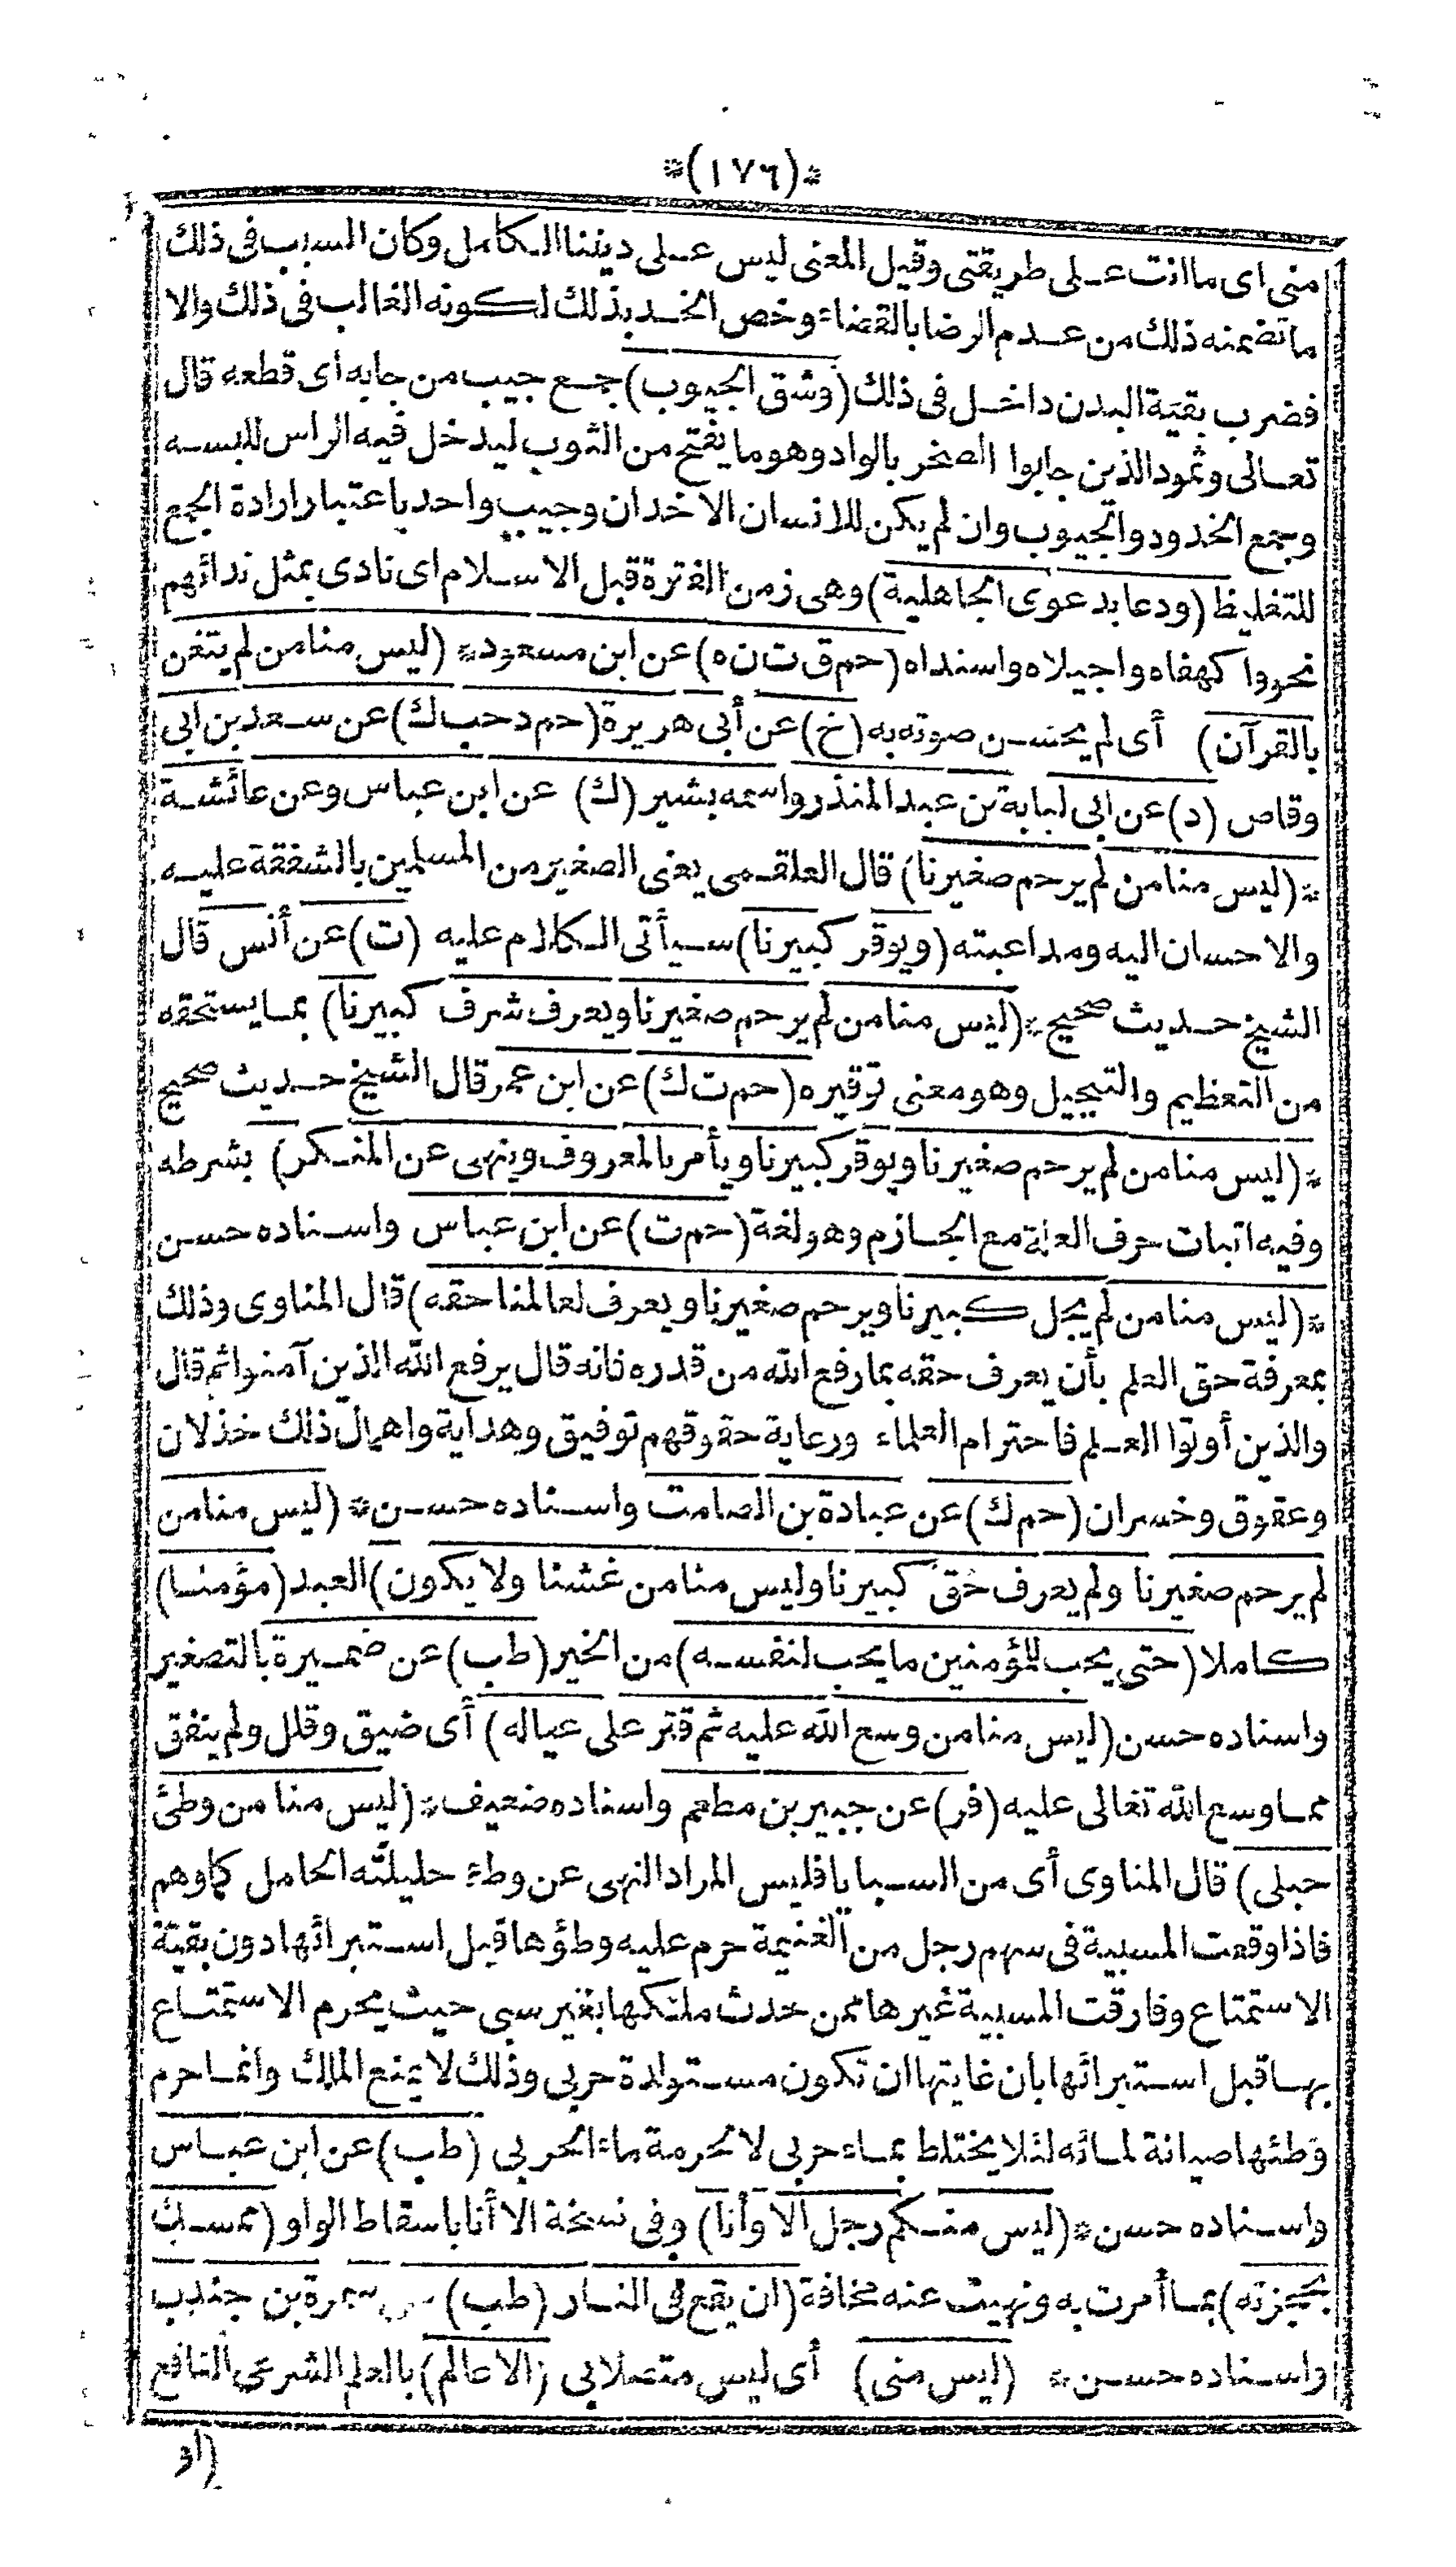 *(١٧٦)*
منى اى ماانت على طريقتى وقيل المعنى ليس على ديننا الكامل وكان السبب فى ذلك
ما تضمنه ذلك من عدم الرضا بالقضاء وخص الخد بذلك لكونه الغالب فى ذلك والا
فضرب بقية البدن داخل فى ذلك (وشق الجيوب) جمع جيب من جابه اى قطعه قال
تعالى وثمود الذين جابوا الصخر بالواد وهو ما يفتح من الثوب ليدخل فيه الراس للبسه
وجمع الخدود والجيوب وان لم يكن للانسان الا خدان وجيب واحد باعتبار ارادة الجمع
للتغليظ (ودعا بدعوى الجاهلية) وهى زمن الفترة قبل الاسلام اى نادى بمثل ندائهم
نحو وا كهفاه وا جبلاه وا سنداه (حم ق ت ن ه) عن ابن مسعود* (ليس منا من لم يتغن
بالقرآن) أى لم يحسن صوته به (خ) عن أبى هريرة (حم د حب ك) عن سعد بن ابى
وقاص (د) عن ابى لبابة بن عبد المنذر واسمه بشير (ك) عن ابن عباس وعن عائشة
*(ليس منا من لم يرحم صغيرنا) قال العلقمى يعنى الصغير من المسلمين بالشفقة عليه
والاحسان اليه ومداعبته (ويوقر كبيرنا) سيأتى الكلام عليه (ت) عن أنس قال
الشيخ حديث صحيح *(ليس منا من لم يرحم صغيرنا ويعرف شرف كبيرنا) بما يستحقه
من التعظيم والتبجيل وهو معنى توقيره (حم ت ك) عن ابن عمر قال الشيخ حديث صحيح
*(ليس منا من لم يرحم صغيرنا ويوقر كبيرنا ويأمر بالمعروف وينهى عن المنكر) بشرطه
وفيه اثبات حرف العلة مع الجازم وهو لغة (حم ت) عن ابن عباس واسناده حسن
*(ليس منا من لم يجل كبيرنا ويرحم صغيرنا ويعرف لعالمنا حقه) قال المناوى وذلك
بمعرفة حق العلم بأن يعرف حقه بما رفع الله من قدره فانه قال يرفع الله الذين آمنوا ثم قال
والذين أوتوا العلم فاحترام العلماء ورعاية حقوقهم توفيق وهداية واهمال ذلك خذلان
وعقوق وخسران (حم ك) عن عبادة بن الصامت واسناده حسن* (ليس منا من
لم يرحم صغيرنا ولم يعرف حق كبيرنا وليس منا من غشنا ولا يكون) العبد (مؤمنا)
كاملا (حتى يحب للمؤمنين ما يحب لنفسه) من الخير (طب) عن ضميرة بالتصغير
واسناده حسن (ليس منا من وسع الله عليه ثم قتر على عياله) أى ضيق وقلل ولم ينفق
مما وسع الله تعالى عليه (فر) عن جبير بن مطعم واسناده ضعيف *(ليس منا من وطئ
حبلى) قال المناوى أى من السبايا فليس المراد النهى عن وطء حليلته الحامل كما وهم
فاذا وقعت المسبية فى سهم رجل من الغنيمة حرم عليه وطؤها قبل استبرائها دون بقية
الاستمتاع وفارقت المسبية غيرها ممن حدث ملكها بغير سبى حيث يحرم الاستمتاع
بها قبل استبرائها بان غايتها ان تكون مستولدة حربى وذلك لا يمنع الملك وانما حرم
وطئها صيانة لمائه لئلا يختلط بماء حربى لا لحرمة ماء الحربى (طب) عن ابن عباس
واسناده حسن *(ليس منكم رجل الا وأنا) وفى نسخة الا أنا باسقاط الواو (ممسك
بحجزته) بما أمرت به ونهيت عنه مخافة (ان يقع فى النار (طب) سمرة بن جندب
واسناده حسن * (ليس منى) أى ليس متصلا بى (الا عالم) بالعلم الشرعى النافع
(او